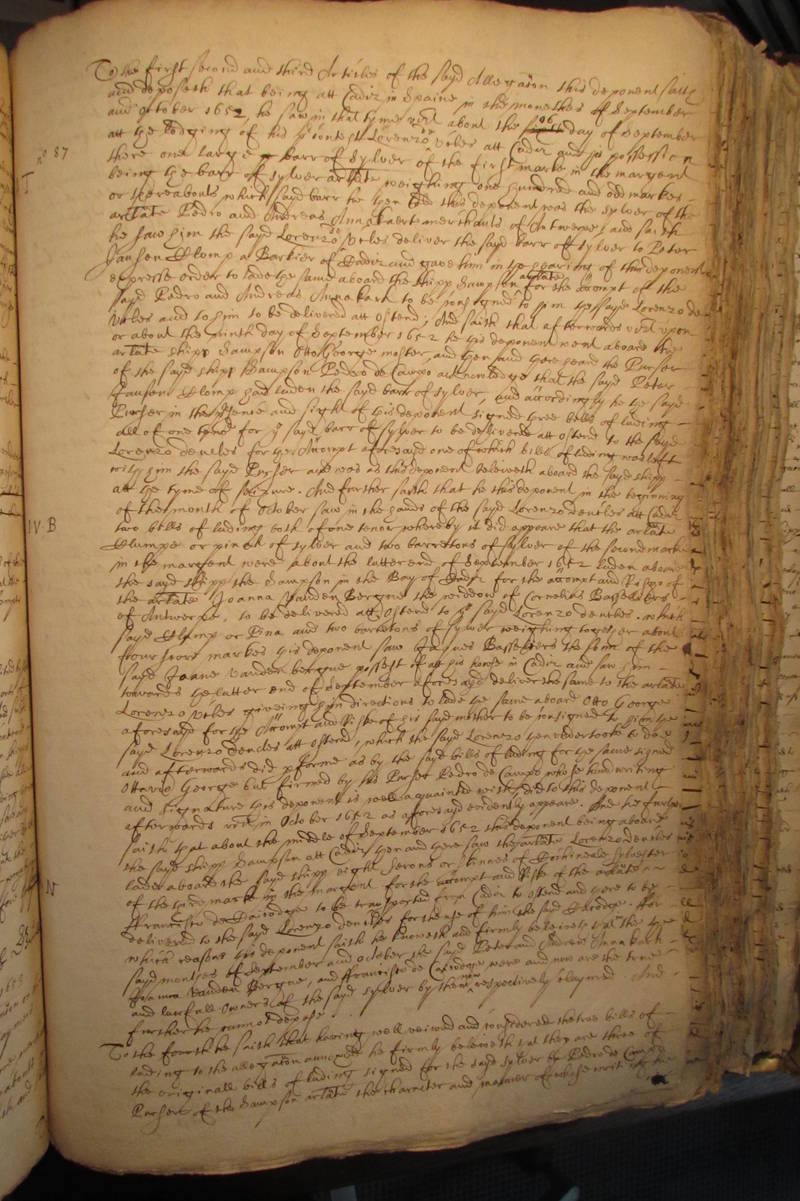 To the first second and third Articles of the sayd Allegaton this deponent saith
and deposeth that being att Cadiz in Spaine in the monethes of September
and October 1652, he saw in that tyme vizt about the 06 day of September
att the lodging of his Lorenzo de Veles att Cadiz and in possession
no 87
there one large barr of sylver of the first marke in the margent
being the barr of sylver arlate weighing one hundred and odd markes
or thereabouts which sayd barr hee then told this deponent was the sylver of the
arlate Pedro and Andreas Annakaert merchants of Antwerpe, and saith
he saw him the sayd Lorenzo de Veles deliver the sayd barr of sylver to Peter
Jansen Plomp a Barkier of Cadiz and gave him in the hearing of this deponent
expresse order to lade the same aboard the shipp Sampson arlate for the accompt of the
sayd Pedro and Andreas Annakart to be consigned to him the sayd Lorenzo de
Veles and to him to be delivered att Ostend; And saith that afterwards vizt upon
or about the ninth day of September 1652 he this deponent went aboard the
arlate shipp Sampson Otto George master, and then and there heard the Purser
of the sayd shipp Sampson Pedro de Campo acknowledge that the sayd Peter
Jansen Plomp had laden the sayd barr of sylver, and accordingly he the sayd
Purser in the presence and sight of this deponent signed three bills of lading
all of one tenor for the sayd barr of sylver to be delivered att Ostend to the sayd
Lorenzo de veles for the Accompt aforesayd one of which bills of lading was left
with him the sayd Purser and was as this deponent beleeveth aboard the sayd shipp
att the tyme of seizure. And further saith that he this deponent in the beginning
of the month of October saw in the hands of the sayd Lorenzo de veles att Cadiz
IV B
two bills of lading both of one tenor whereby it did appeare that the arlate
Plumpe or pina of sylver and two barretons of sylver of the second marke
in the margent were about the latter end of September 1652 laden aboard
the sayd shipp the Sampson in the Bay of Cadiz for the accompt and Risgo of
the arlate Joanna Vanden Bergue the widdow of Cornelius Basseliers
of Antwerpe, to be delivered att Ostend to the sayd Lorenzo de veles. which
sayd Plump or Pina and two barretons of sylver weighing together about
markes this deponent saw Jaques Basseliers the sonne of the
sayd Joane vanden bergue possest of att his house in Cadiz and saw him
towards the latter end of September aforesayd deliver the same to the arlate
Lorenzo Veles giveing him directions to lade the same aboard Otto George
aforesayd for the Accompt and Risgo of his sayd mother to be consigned to him the
sayd Lorenzo de veles att Ostend, which the sayd Lorenzo then undertooke to doe
and afterwards did performe as by the sayd bills of lading for the same signed
Ottavio George but firmed by his Purser Pedro de Campo whose hand writing
and signature this deponent is well acquainted with did to this deponent
afterwards vizt in October 1652 as aforesayd evidently appeare. And he further
saith that about the middle of September 1652 this deponent being aboard
the sayd shipp Sampson att Cadiz then and there saw the arlate Lorenzo de veles
lade aboard the sayd shipp eight serons or skinnes of Cochineale sylvester
N
of the third marke in the margent for the accompt and Risgo of the arlate
Francisco de to be transported from Cadiz to Ostend and there to be
delivered to the sayd Lorenzo de veles for the use of him the sayd For
which reasons this deponent saith he knoweth and firmly beleeveth that in the
sayd monthes of September and October the sayd Peter and Andreas Annakart
Joanna Vanden Bergue, and Francisco de were and now are the true
and lawfull Owners of the sayd sylver by them respectively claymed. And
further he cannot depose.
To the fourth he saith that having well veiwed and considered the three bills of
lading to the allegaton annexed he firmly beleeveth that they are three of
the originall bills of lading signed for the sayd sylver by Pedro de Campo
Purser of the Sampson arlate the character and manner of whose writing